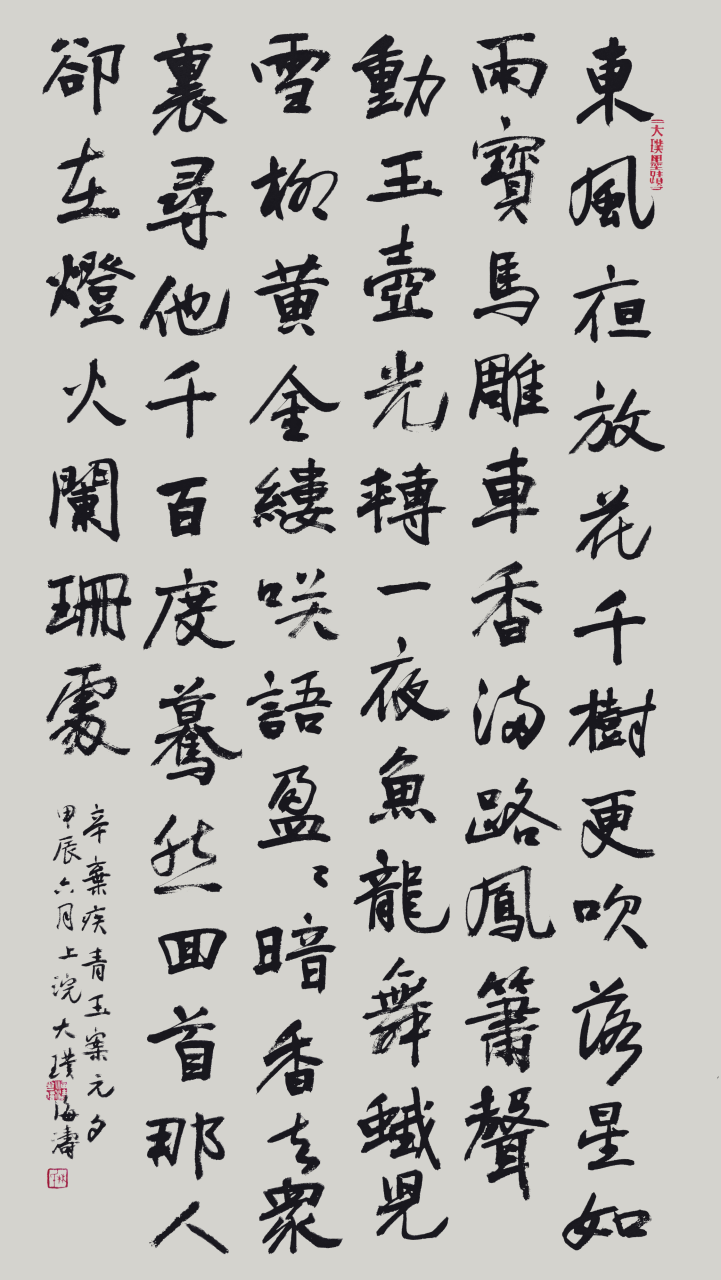 大璞墨蹟
東風亱放花千樹更吹落星如
雨寶馬雕車香滿路鳳簫聲
動玉壺光轉一夜魚龍舞蛾兒
雪柳黃金縷咲語盈〻暗香去眾
裏尋他千百度驀然回首那人
卻在燈火闌珊處
辛棄疾青玉案元夕
甲辰六月上浣大璞海濤